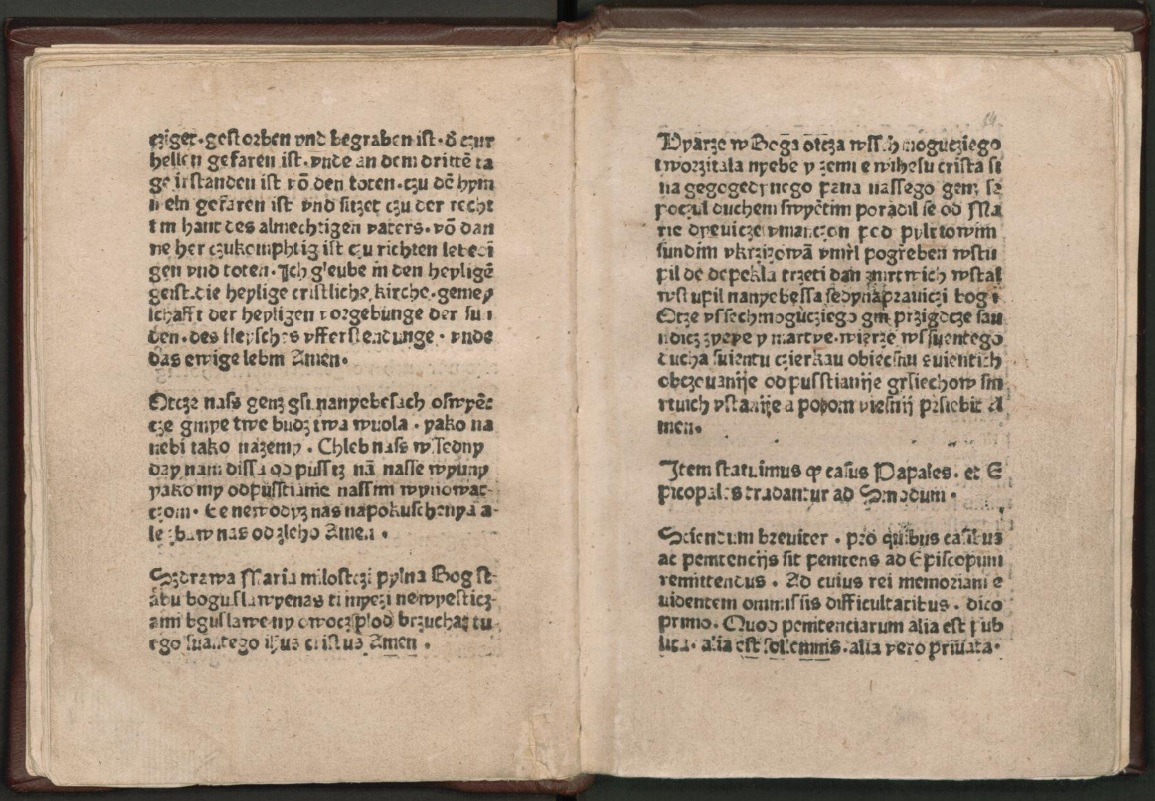 cziget·gestorben vnd begraben ist·d czur
hellen gefaren ist·vnde an dem drittē ta
ge irstanden ist vō den toten·czu dē hym
n eln gefaren ist vnd sitzet czu der recht
im hant des almechtigen vaters·vō dan
ne her czukomphtig ist czu richten lebēdi
gen vnd toten·Jch gleube in den heyligē
geist·die heylige cristliche kirche·gemey
schafft der heyligen vorgebunge der sun
den·des fleysches vfferstendunge·vnde
das ewige lebm Amen·
Otcze nass genz gsi nanyebesach oswyēc
cze gmye twe budz twa wuola·yako na
nebi tako nazemy·Chleb nass wssedny
day nam dissa odpusstz nā nasse wyuny
yako my odpusstiame nassim wynowat-
czom·Ee newodyz nas napokuschenya a-
le zbaw nas od zleho Amen·
Szdrawa Maria milosczi pylna Bog st-
abu boguslawyenas ti myezi newyesticz-
ami bguslaweny owoczplod brzucha tu-
ego suantego ihus cristus Amen·
14
Dyarze w Boga otcza wss hmoguczego
tworzitala nyebe y zemi e wihesu crista si
na gegogedynego pana nassego genz se
poczul duchem swyētim poradil se od Ma
rie dyeuicze vmanczon pod pylitowim
sundim vkrzizowā vmrl pogreben wstu
pil do depekla trzeti dan zmrtwich wstal
wstupil nanyebessa sedynaprauiczi bog i
Otze vssechmoguciego gm przigdcze sau
ndicz zyeye y martye·wierze wssuentego
ducha suientu czierkau obiecsnu suientich
obczouanije odpusstianije grsiechow sm
rtuich vstanije a potom viesnij psiebit A
men·
Jtem statuimus ꝙ casus Papales·et E
picopales tradantur ad Smodum·
Sciendum breuiter·pro quibus casibus
ac penitencijs sit penitens ad Episcopum
remittendus·Ad cuius rei memoriam e
uidentem omnissis difficultatibus·dico
primo·Quod penitenciarum alia est pub
lica·alia est solemnis·alia vero priuata·